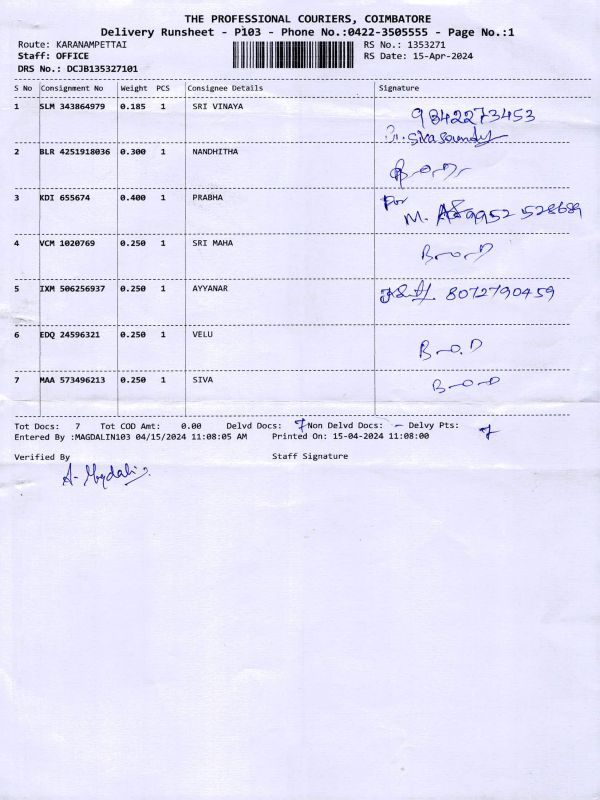 THE PROFESSIONAL COURIERS, COIMBATORE
Delivery Runsheet - P103 - Phone No.:0422-3505555 - Page No.:1
Route: KARANAMPETTAI RS No.: 1353271
Staff: OFFICE RS Date: 15-Apr-2024
DRS No.: DCJB135327101
S No Consignment No Weight PCS Consignee Details Signature
1 SLM 343864979 0.185 1 SRI VINAYA 9842273453
2 BLR 4251918036 0.300 1 NANDHITHA
3 KDI 655674 0.400 1 PRABHA For
M. 9952 528689
4 VCM 1020769 0.250 1 SRI MAHA B-O-D
5 IXM 506256937 0.250 1 AYYANAR 8072790459
6 EDQ 24596321 0.250 1 VELU B-O.D
7 MAA 573496213 0.250 1 SIVA B-O-D
Tot Docs: 7 Tot COD Amt: 0.00 Delvd Docs: 7 Non Delvd Docs: - Delvy Pts: 7
Entered By :MAGDALIN103 04/15/2024 11:08:05 AM Printed On: 15-04-2024 11:08:00
Verified By Staff Signature